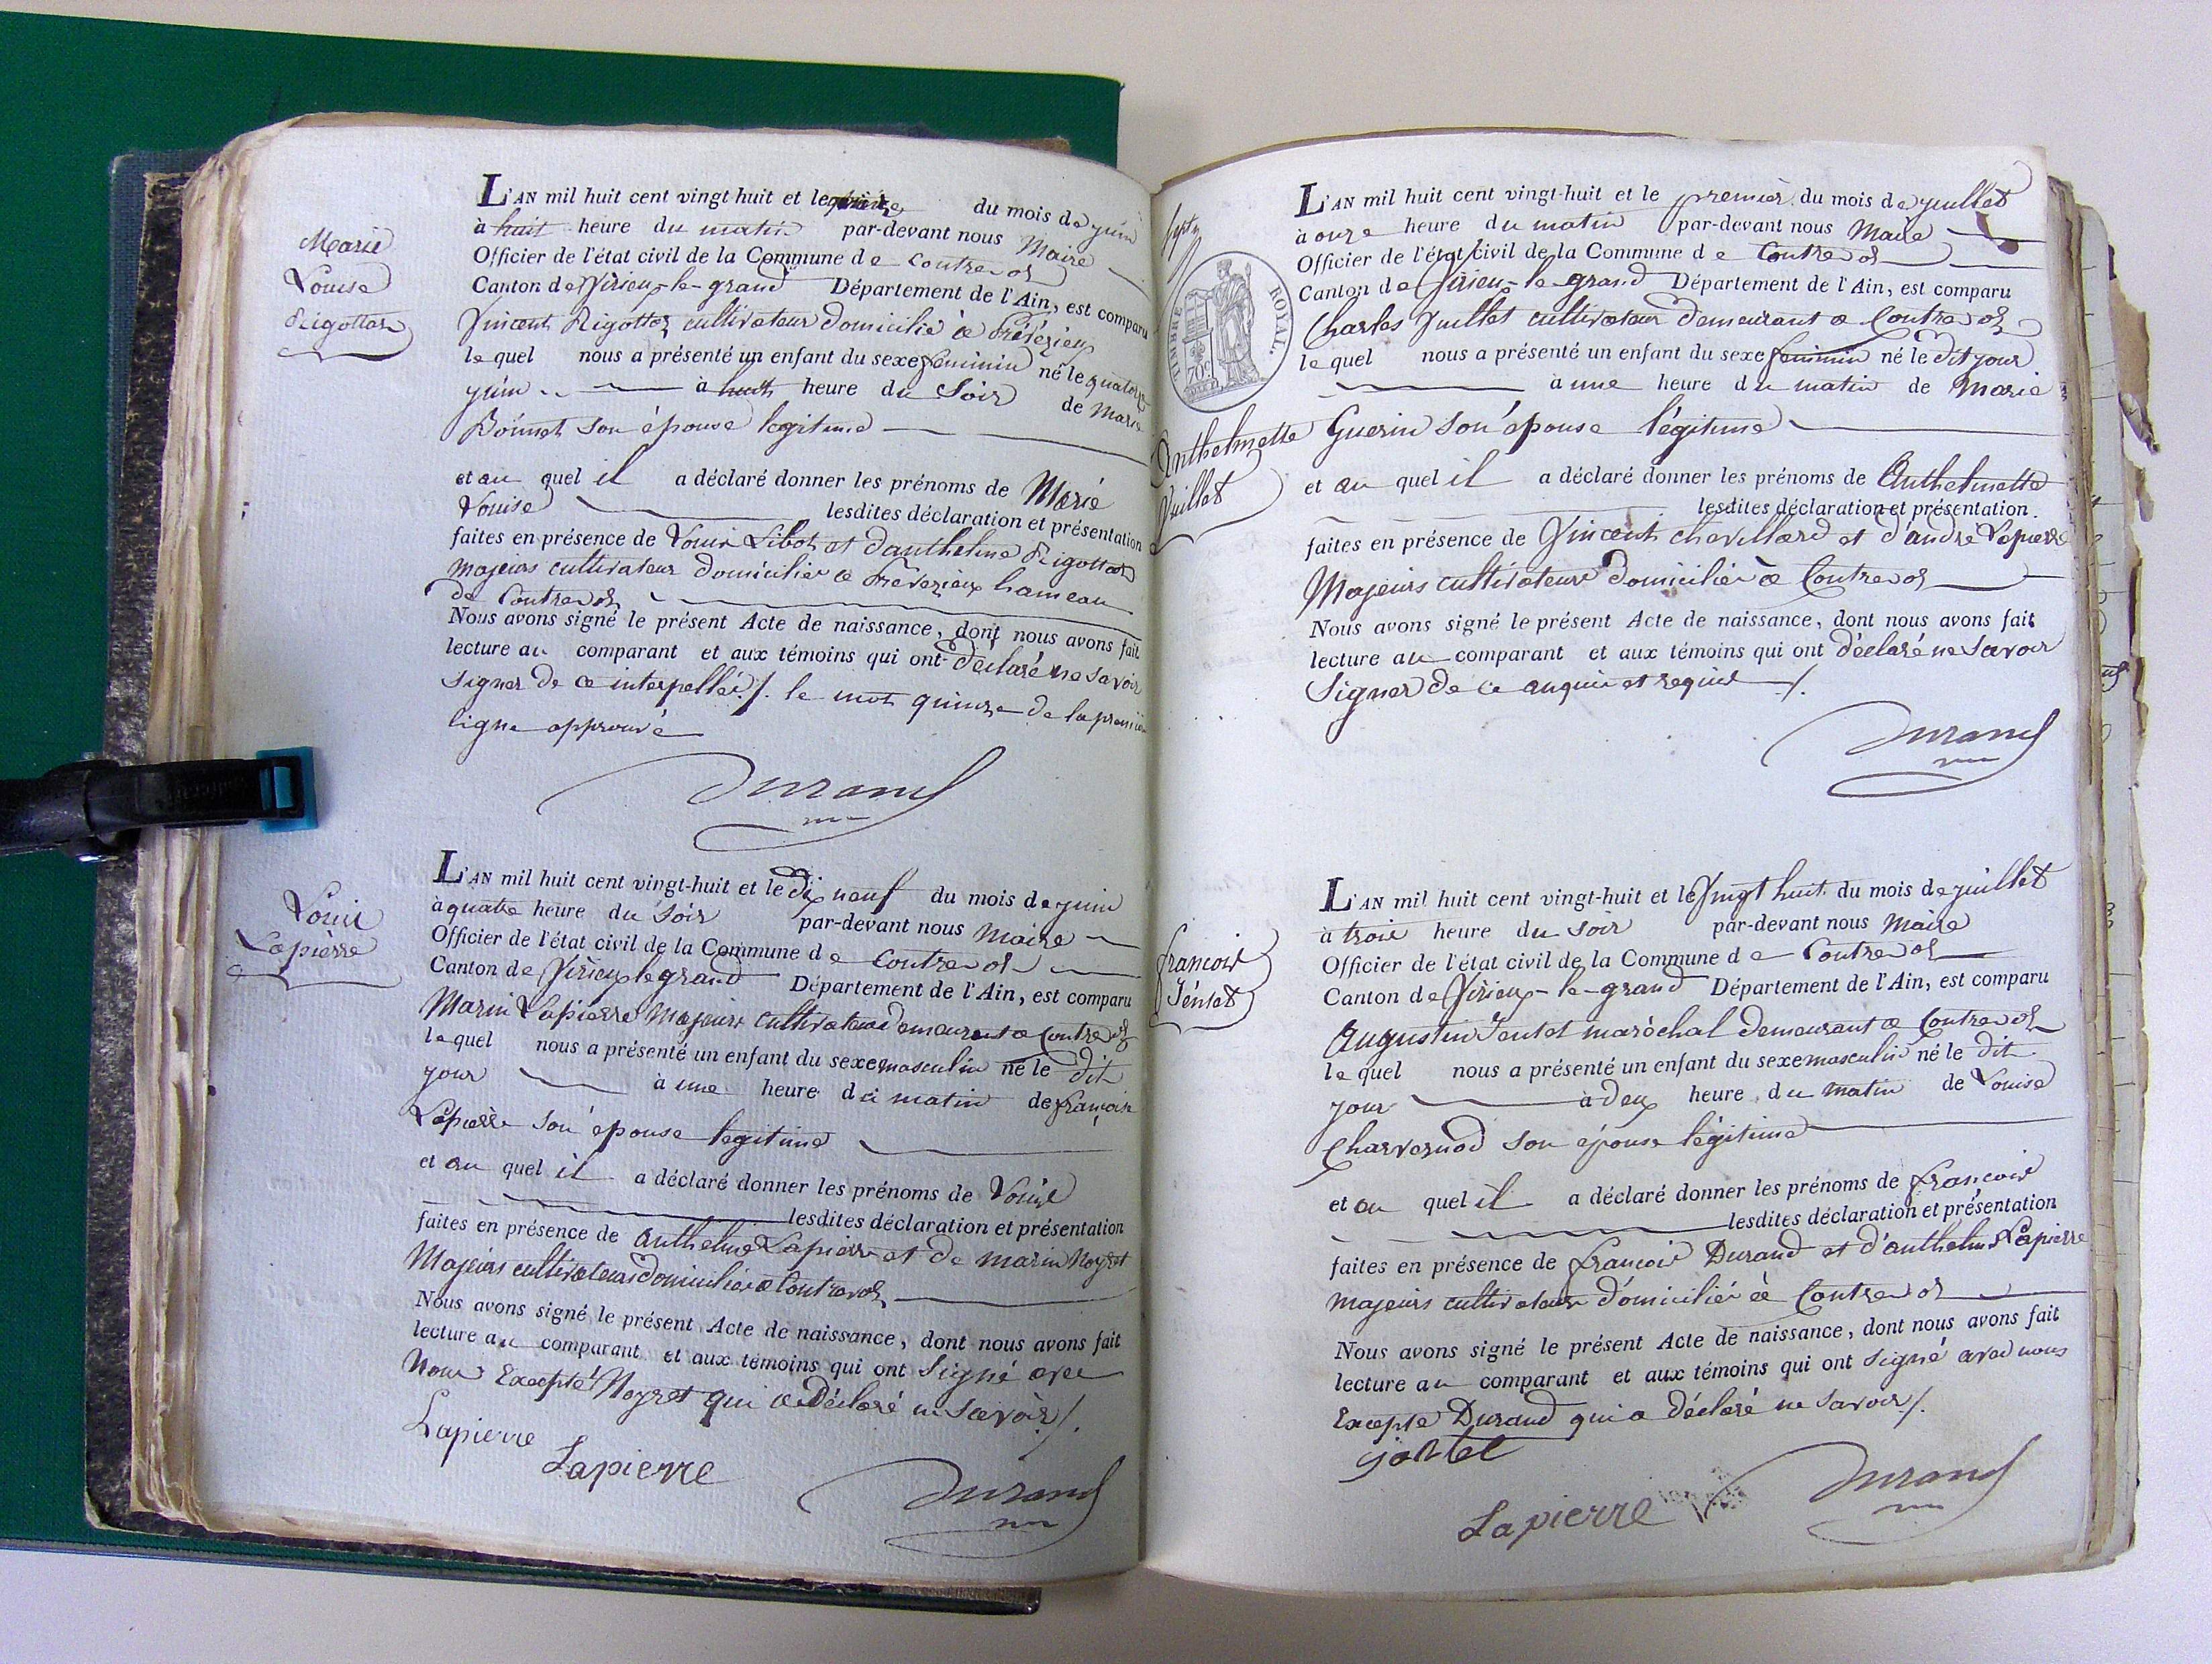 Marie
Louise
Rigottaz
L'AN mil huit cent vingt-huit et le quinze du mois de juin
à huit heure du matin par-devant nous Maire
Officier de l'état civil de la Commune de Contrevoz
Canton de Virieu-le-grand Département de l'Ain, est comparu
Vincent Rigottaz cultivateur domicilié à Prévézieu
le quel nous a présenté un enfant du sexe féminin né le quatorze
juin à huit heure du soir de Marie
Bonnet son épouse légitime
et au quel il a déclaré donner les prénoms de Marie
Louise lesdites déclaration et présentation
faites en présence de Louis Sibot et d'anthelme Rigottaz
majeurs cultivateur domicilier à Prévezieux hameau
de Contrevoz
Nous avons signé le présent Acte de naissance, dont nous avons fait
lecture au comparant et aux témoins qui ont déclaré ne savoir
signer de ce interpellés/. le mot quinze de la premiere
ligne approuvé
Durand
Louis
Lapierre
L'AN mil huit cent vingt-huit et le dix neuf du mois de juin
à quatre heure du soir par-devant nous Maire
Officier de l'état civil de la Commune de Contrevoz
Canton de Virieu le grand Département de l'Ain, est comparu
Marin Lapierre Majeurs cultivateur demeurant a Contrevoz
le quel nous a présenté un enfant du sexe masculin né le dit
jour à une heure du matin de françoise
Lapierre son épouse légitime
et au quel il a déclaré donner les prénoms de Louis
lesdites déclaration et présentation
faites en présence de anthelme Lapierre et de marin Noyret
Majeurs cultivateurs domicilier a Contrevoz
Nous avons signé le présent Acte de naissance, dont nous avons fait
lecture au comparant et aux témoins qui ont Signé avec
Nous Excepté Noyret qui a déclaré ne savoir/.
Lapierre
Lapierre
Durand
TIMBRE ROYAL.
70c
Anthelmette
Juillet
L'AN mil huit cent vingt-huit et le premier du mois de juillet
à onze heure du matin par-devant nous Maire
Officier de l'état civil de la Commune de Contrevoz
Canton de Virieu-le-grand Département de l'Ain, est comparu
Charles Juillet cultivateur demeurant a Contrevoz
le quel nous a présenté un enfant du sexe feminin né le dit jour
à une heure du matin de Marie
Guerin son épouse légitime
et au quel il a déclaré donner les prénoms de Anthelmette
lesdites déclaration et présentation.
faites en présence de Vincent chevillard et d'andré Lapierre
Majeurs cultivateurs domicilier à Contrevoz
Nous avons signé le présent Acte de naissance, dont nous avons fait
lecture au comparant et aux témoins qui ont déclaré ne savoir
Signer de ce enquis et requis /.
Durand
françois
Jentet
L'AN mil huit cent vingt-huit et le vingt huit du mois de juillet
à trois heure du soir par-devant nous Maire
Officier de l'état civil de la Commune de Contrevoz
Canton de Virieux-le-grand Département de l'Ain, est comparu
Augustin Jentet maréchal demeurant a Contrevoz
le quel nous a présenté un enfant du sexe masculin né le dit
jour à deux heure du matin de Louise
Charvernod son épouse légitime
et au quel il a déclaré donner les prénoms de françois
lesdites déclaration et présentation
faites en présence de françois Durand et d'anthelme Lapierre
majeurs cultivateur domicilié à Contrevoz
Nous avons signé le présent Acte de naissance, dont nous avons fait
lecture au comparant et aux témoins qui ont signé avec nous
Excepté Durand qui a déclaré ne savoir/.
Lapierre
Durand